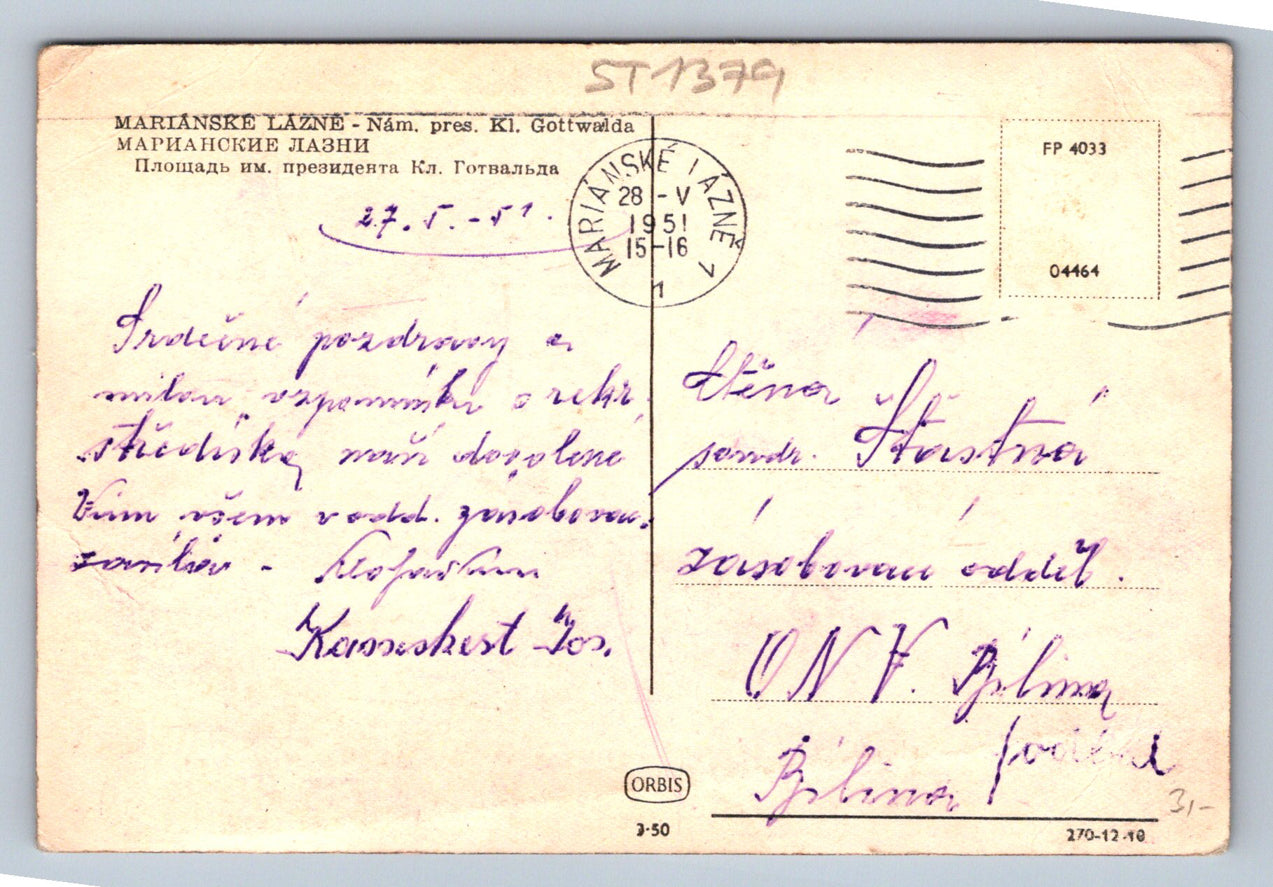 ST1379
MARIÁNSKÉ LÁZNĚ - Nám. pres. Kl. Gottwalda
МАРИАНСКИЕ ЛАЗНИ
Площадь им. президента Кл. Готвальда
27.5.-51.
MARIÁNSKÉ LÁZNĚ 1
28 -V
1951
15-16
1
FP 4033
04464
Srdečné pozdravy a
milou vzpomínku z rekr.
střediska naší dovolené
Vám všem v odd. zásobovac.
zasílá -
Jos.
Ctěná
soudr. Šťastná
zásobovací odděl.
ONV. Bílina
Bílina
ORBIS
3-50
270-12-10
3,-